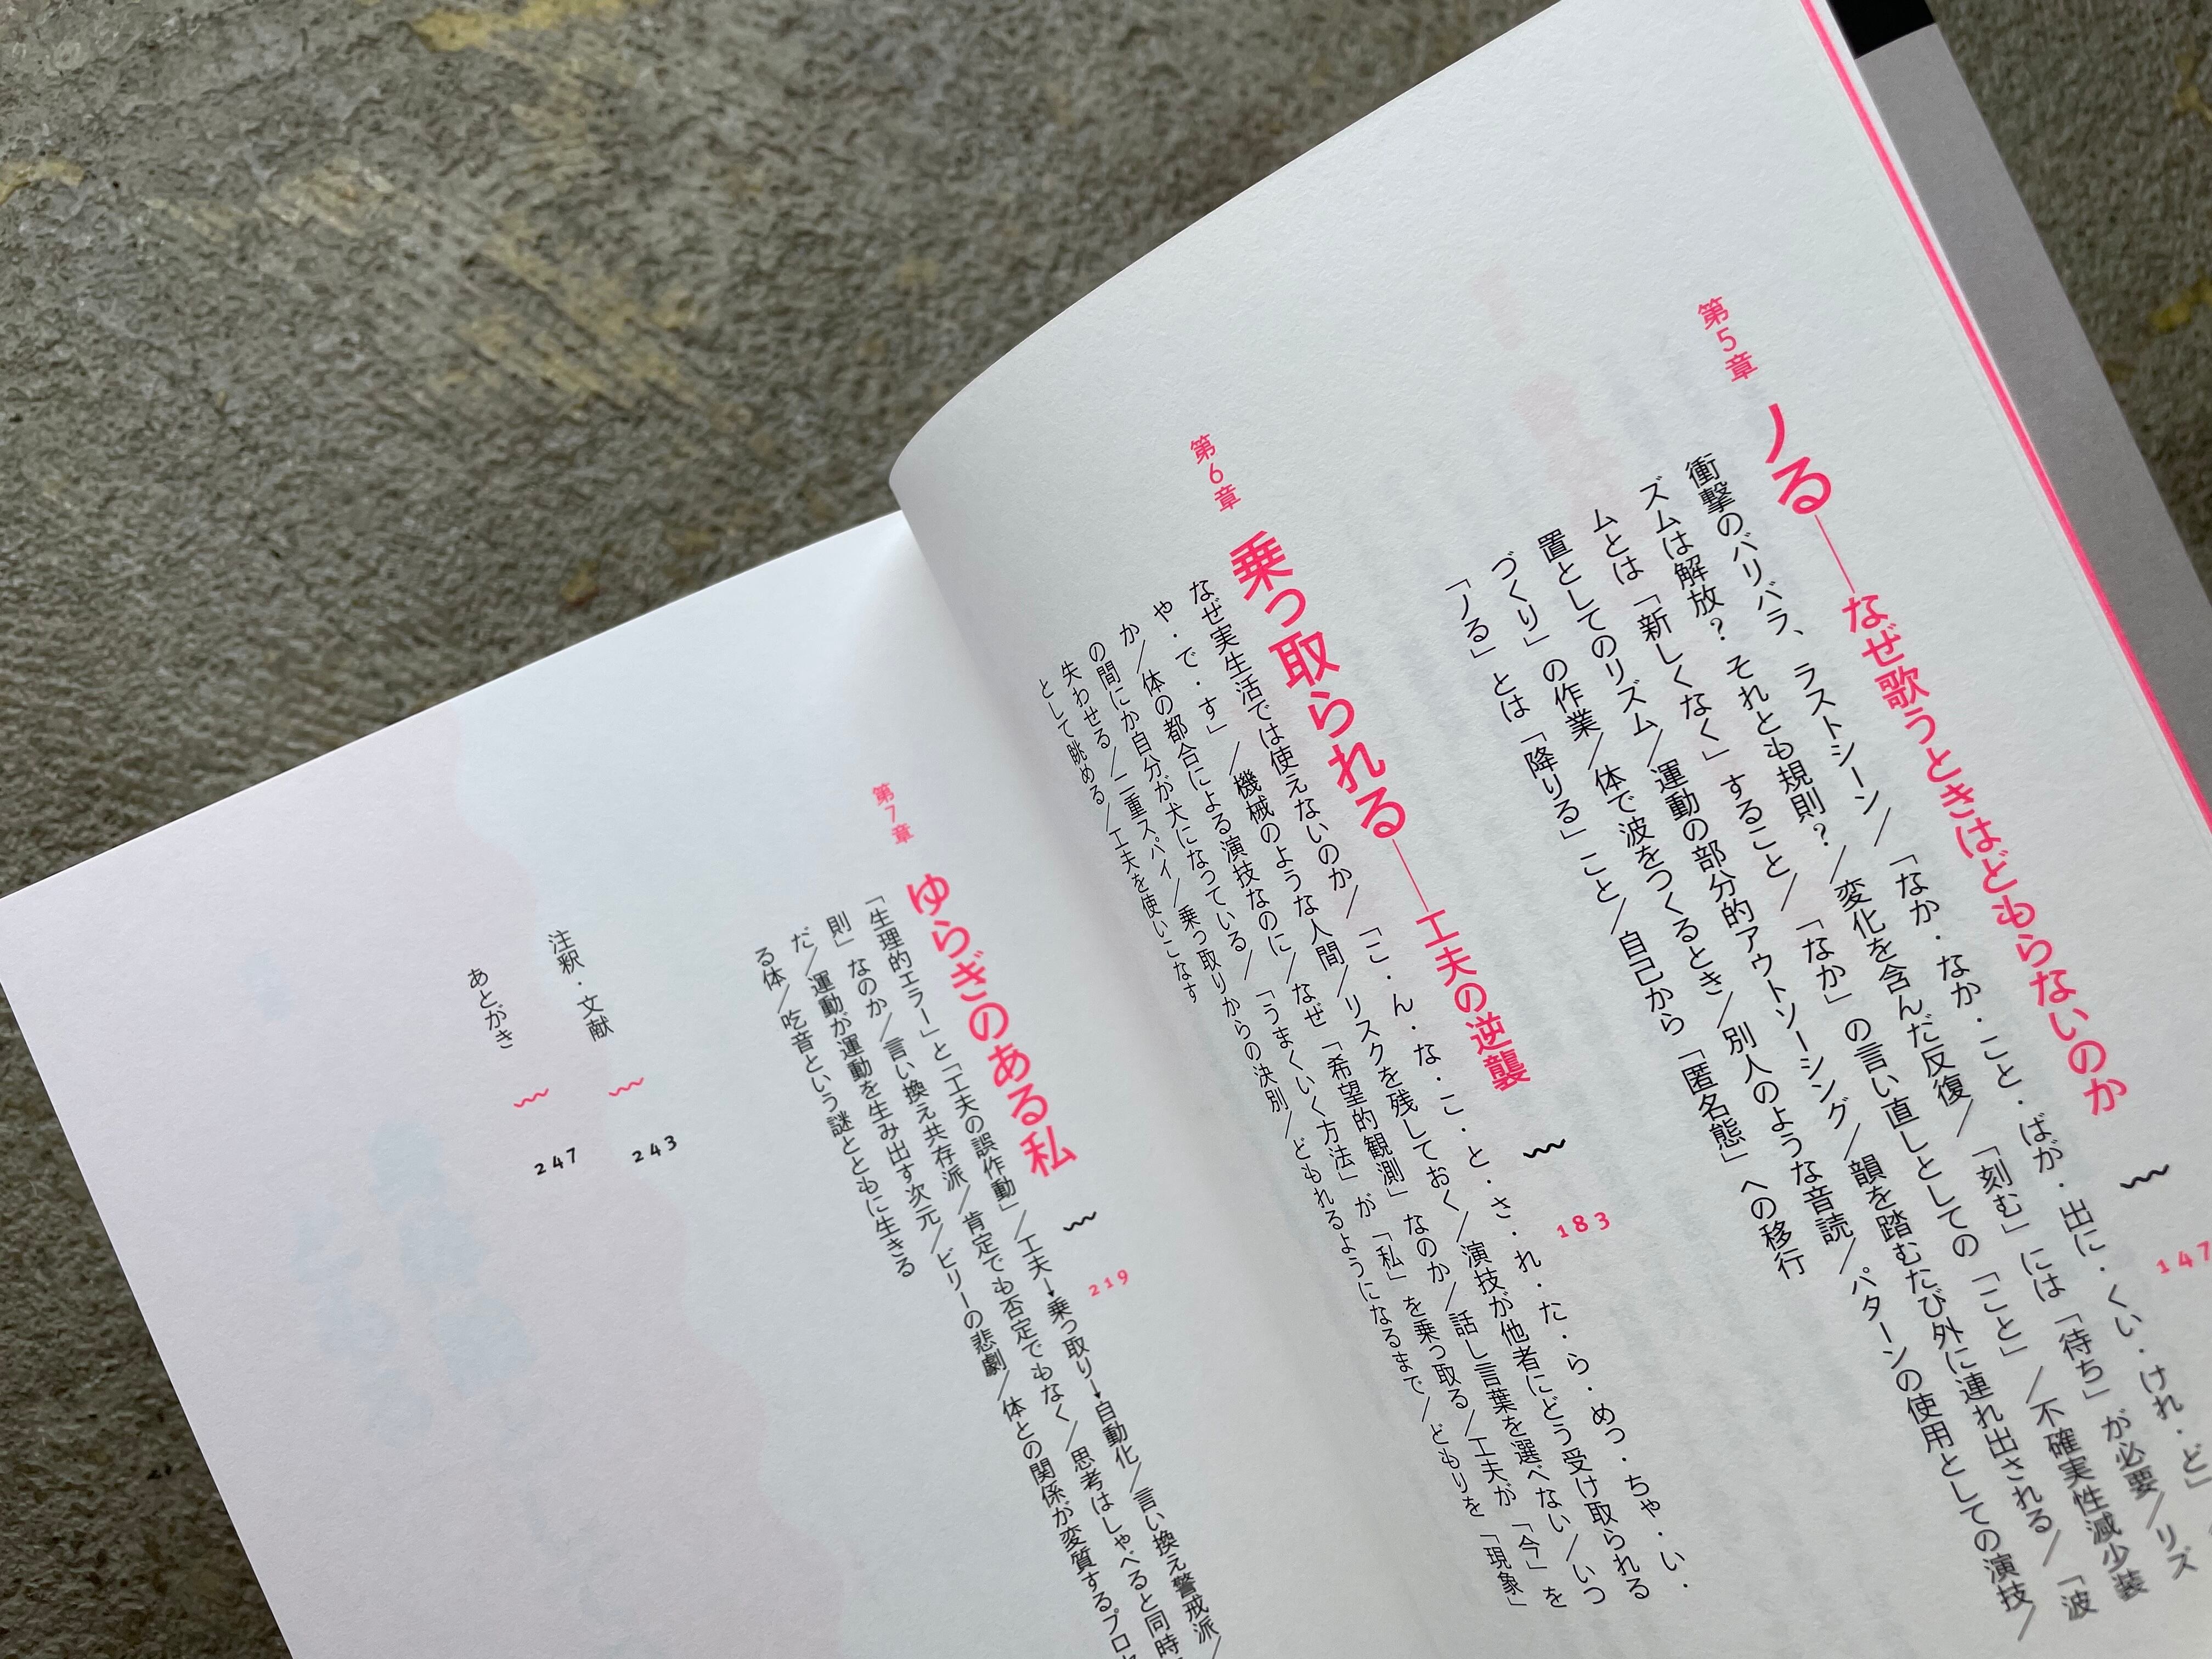 第5章 ノる――なぜ歌うときはどもらないのか 〜 147
衝撃のバリバラ、ラストシーン／「なか・なか・こと・ばが・出に・くい・けれ・ど」
ズムは解放？ それとも規則？／変化を含んだ反復／「刻む」には「待ち」が必要／リズ
ムとは「新しくなく」すること／「なか」の言い直しとしての「こと」／不確実性減少装
置としてのリズム／運動の部分的アウトソーシング／韻を踏むたび外に連れ出される／「波
づくり」の作業／体で波をつくるとき／別人のような音読／パターンの使用としての演技／
「ノる」とは「降りる」こと／自己から「匿名態」への移行
第6章 乗っ取られる――工夫の逆襲 〜 183
なぜ実生活では使えないのか／「こ・ん・な・こ・と・さ・れ・た・ら・めっ・ちゃ・い・
や・で・す」／機械のような人間／リスクを残しておく／演技が他者にどう受け取られる
か／体の都合による演技なのに／なぜ「希望的観測」なのか／話し言葉を選べない／いつ
の間にか自分が犬になっている／「うまくいく方法」が「私」を乗っ取る／工夫が「今」を
失わせる／二重スパイ／乗っ取りからの決別／どもれるようになるまで／どもりを「現象」
として眺める／工夫を使いこなす
第7章 ゆらぎのある私 〜 219
「生理的エラー」と「工夫の誤作動」／工夫→乗っ取り→自動化／言い換え警戒派／
則」なのか／言い換え共存派／肯定でも否定でもなく／思考はしゃべると同時
だ／運動が運動を生み出す次元／ビリーの悲劇／体との関係が変質するプロセ
る体／吃音という謎とともに生きる
注釈・文献 〜 243
あとがき 〜 247